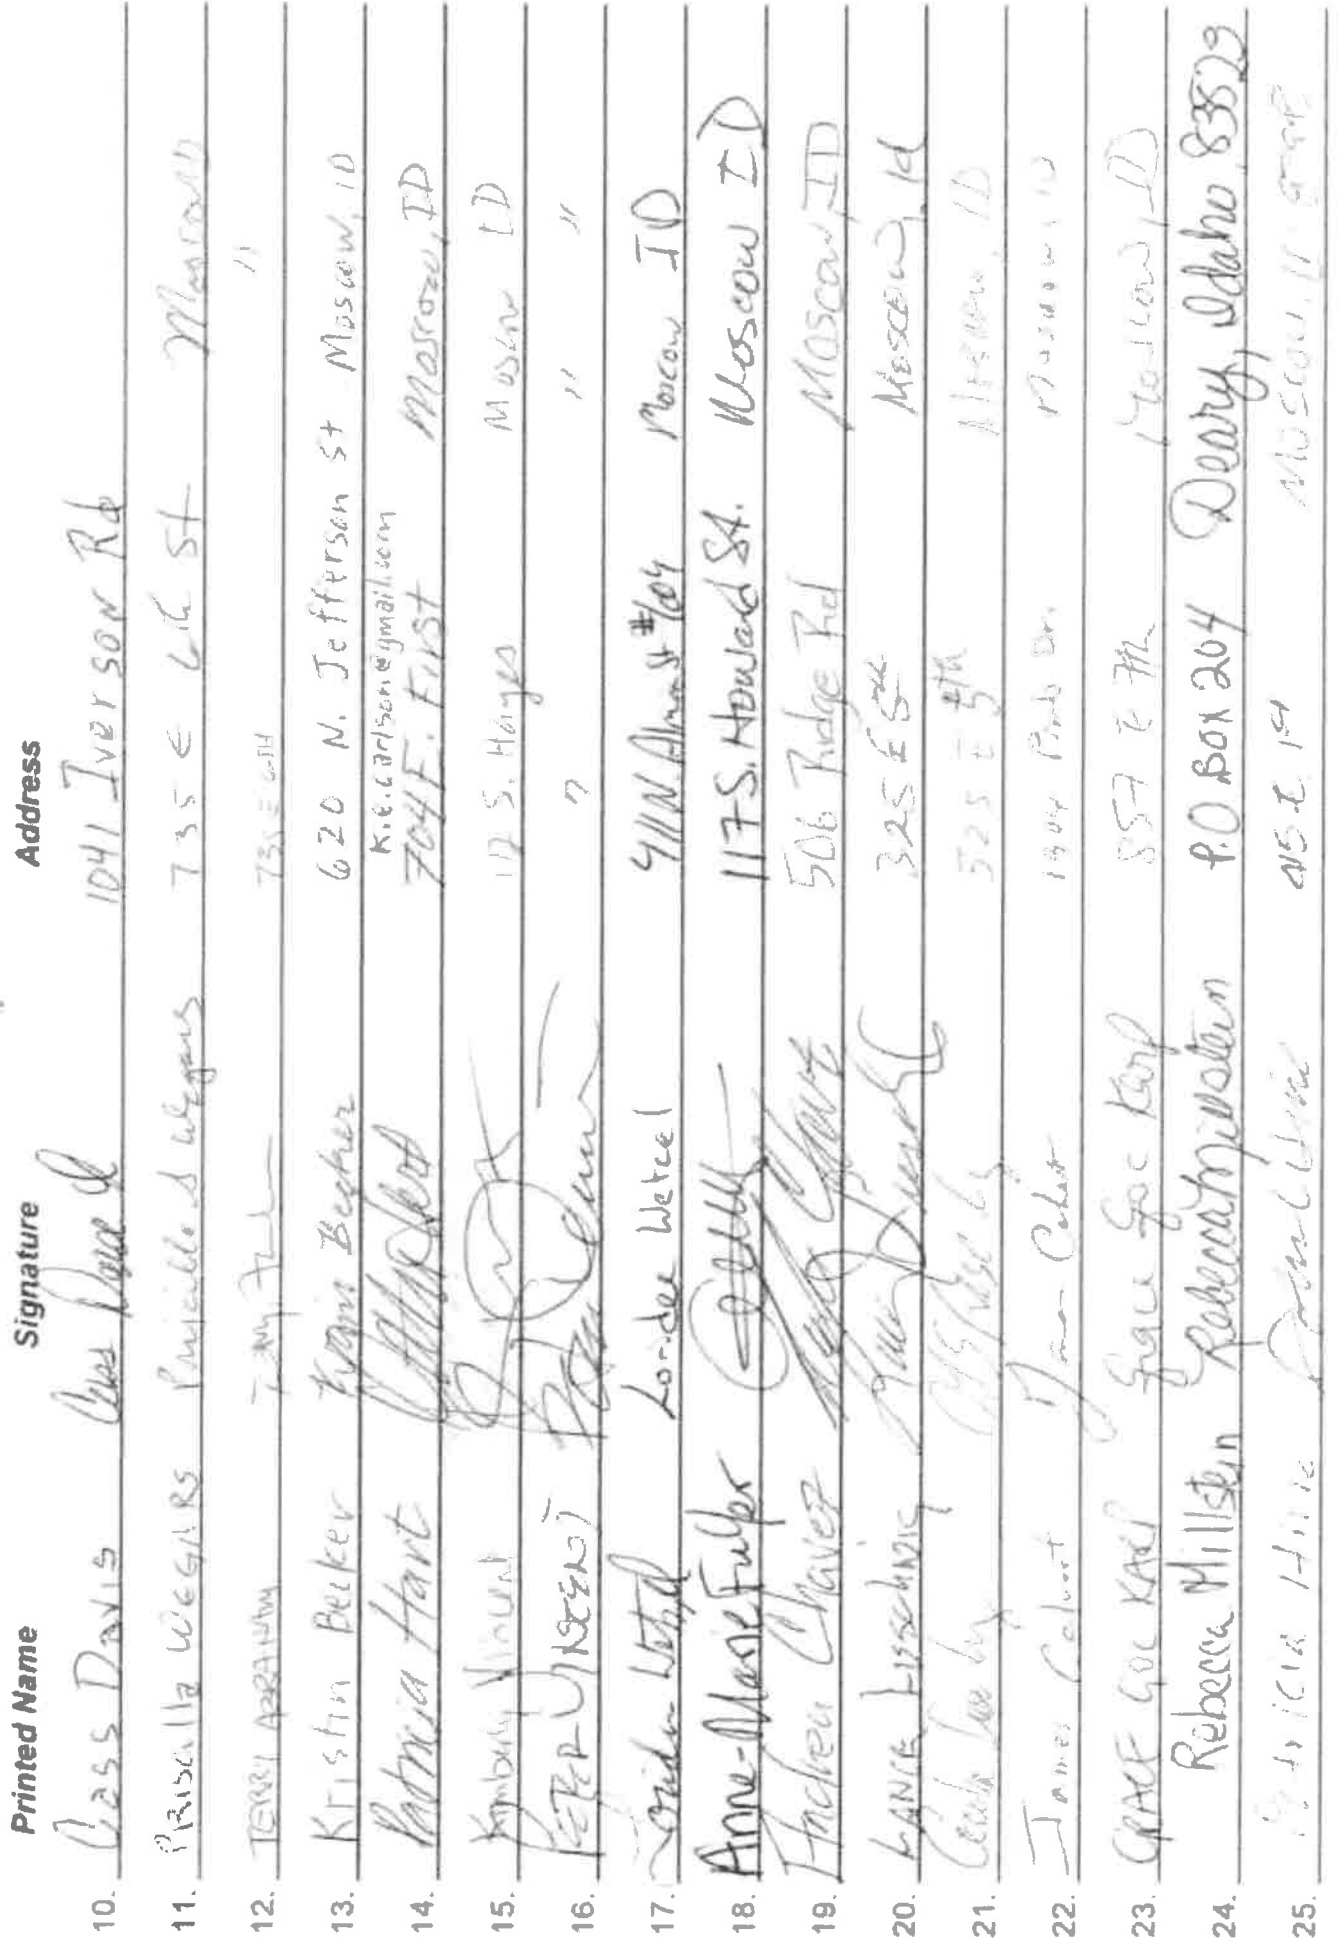 Printed Name Signature Address
10. Cass Davis Cass Davis 1041 Iverson Rd
11. Priscilla WEGARS Priscilla S Wegars 735 E 6th St Moscow
12. TERRI 735 E 6TH "
13. Kristin Becker Kristin Becker 620 N. Jefferson St Moscow, ID
K.e.carlson@gmail.com
14. Patricia Hart 704 E. First Moscow, ID
15. Kimberly Vincent 112 S. Hayes Moscow ID
16. " " "
17. Loridee Wetzel Loridee Wetzel 411 N. Almon St #104 Moscow ID
18. Anne-Marie Fulfer 117 S. Howard St. Moscow ID
19. Chavez 506 Ridge Rd Moscow, ID
20. LANCE 325 E 5th Moscow, Id
21. 325 E 5th Moscow, ID
22. James Calvert 1904 Dr. Moscow, ID
23. GRACE GOC KARP Grace Goc Karp 857 E 7th Moscow, ID
24. Rebecca Millstein Rebecca Millstein P.O. Box 204 Deary, Idaho 83823
25. Patricia Hine 415 E 1st Moscow, ID